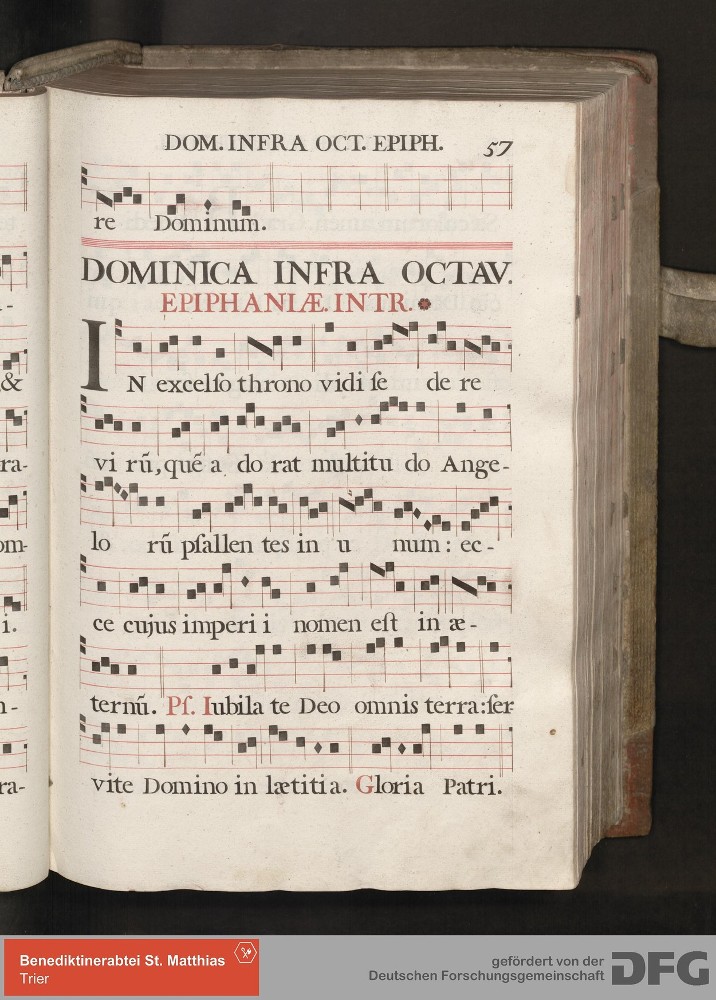 DOM. INFRA OCT. EPIPH. 57
re Dominum.
DOMINICA INFRA OCTAV.
EPIPHANIÆ. INTR.
IN excelſo throno vidi ſe de re
vi rū, quē a do rat multitu do Ange-
lo rū pſallen tes in u num: ec-
ce cujus imperi i nomen eſt in æ-
ternū. Pſ. Iubila te Deo omnis terra: ſer
vite Domino in lætitia. Gloria Patri.
&
ra-
om-
i.
n-
ra-
Benediktinerabtei St. Matthias
Trier
gefördert von der
Deutschen Forschungsgemeinschaft
DFG